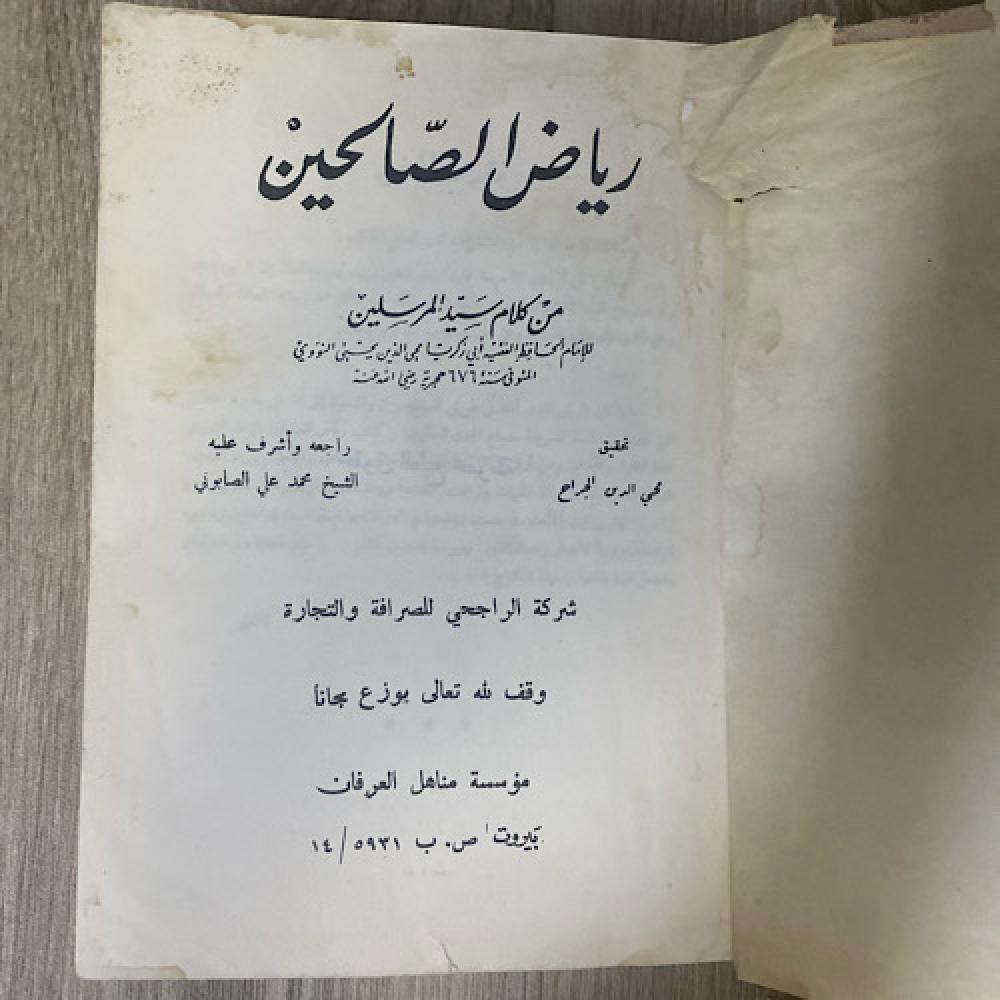 رياض الصّالحين
من كلام سَيّد المرسَلين
للإمام الحافظ الفقيه أبي زكريا محيي الدين يحيى النووي
المتوفى سنة ٦٧٦ هجرية رضي الله عنه
تحقيق
محي الدين الجراح
راجعه وأشرف عليه
الشيخ محمد علي الصابوني
شركة الراجحي للصرافة والتجارة
وقف لله تعالى يوزع مجاناً
مؤسسة مناهل العرفان
بيروت ص. ب ٥٩٣١ / ١٤